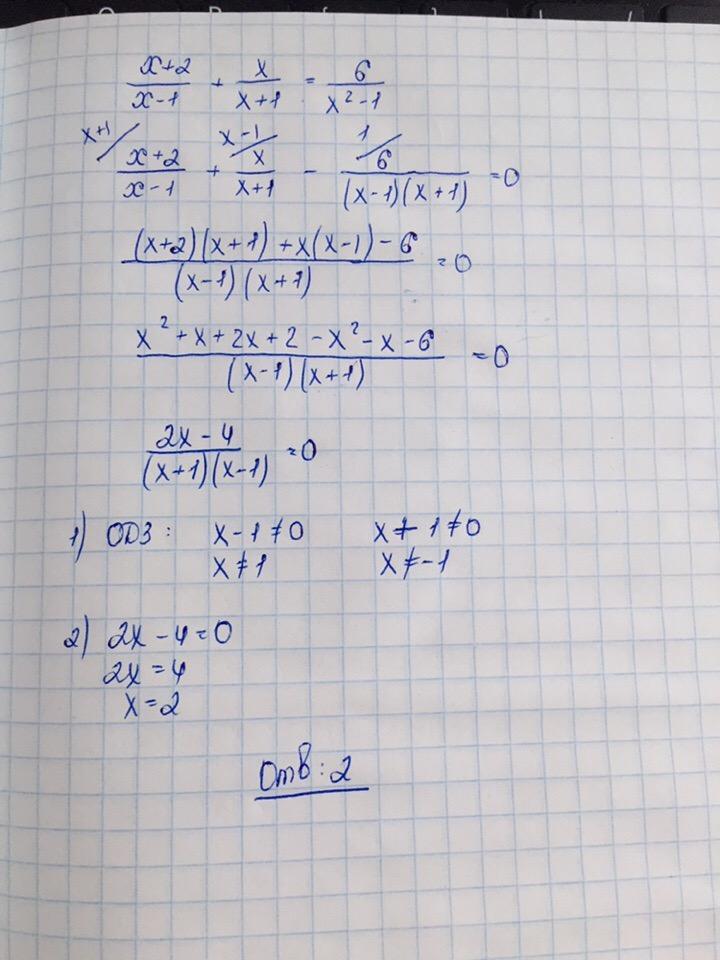 x+2/x-1 + x/x+1 = 6/x²-1
x+1/ x+2/x-1 + x-1/ x/x+1 - 1/ 6/(x-1)(x+1) =0
(x+2)(x+1)+x(x-1)-6/(x-1)(x+1) =0
x²+x+2x+2-x²-x-6/(x-1)(x+1) =0
2x-4/(x+1)(x-1) =0
1) ОДЗ: x-1≠0 x+1≠0
x≠1 x≠-1
2) 2x-4=0
2x=4
x=2
Отв: 2